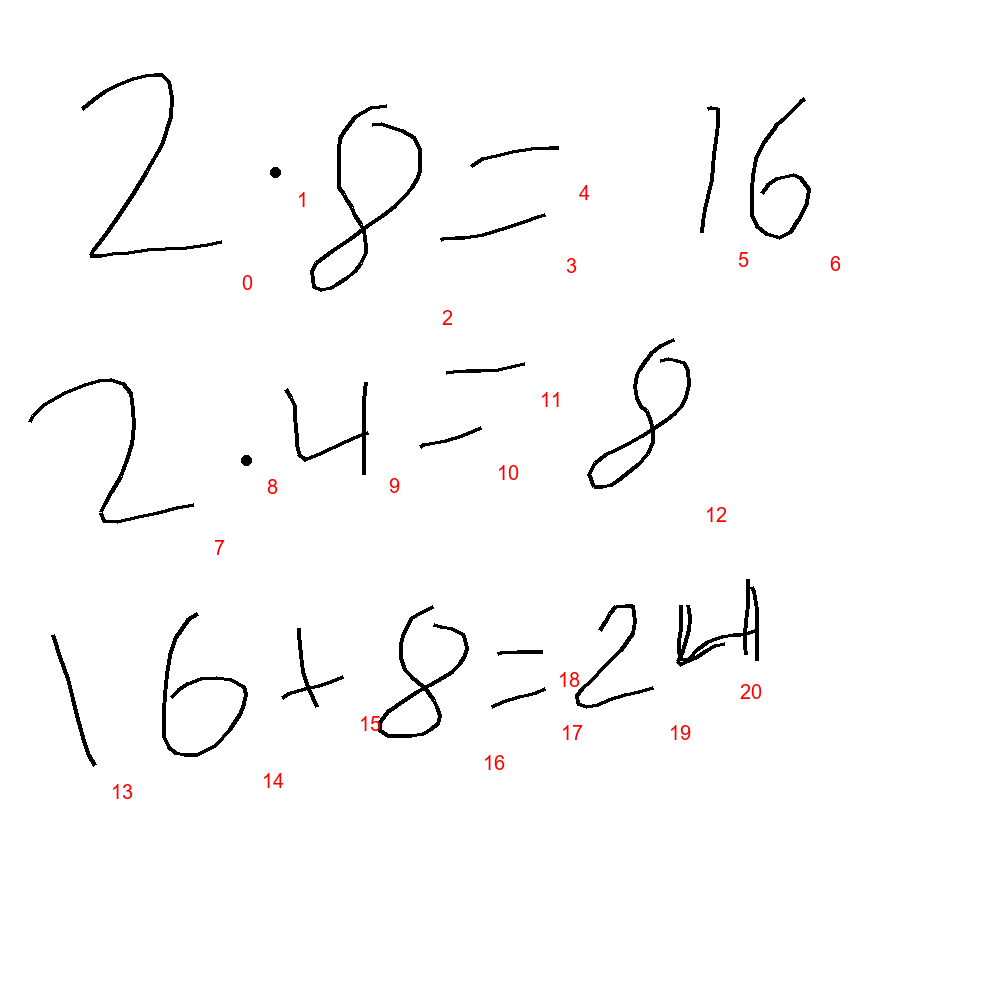 2 · 8 = 16
0 1 2 3 4 5 6
2 · 4 = 8
7 8 9 10 11 12
16 + 8 = 24
13 14 15 16 17 18 19 20